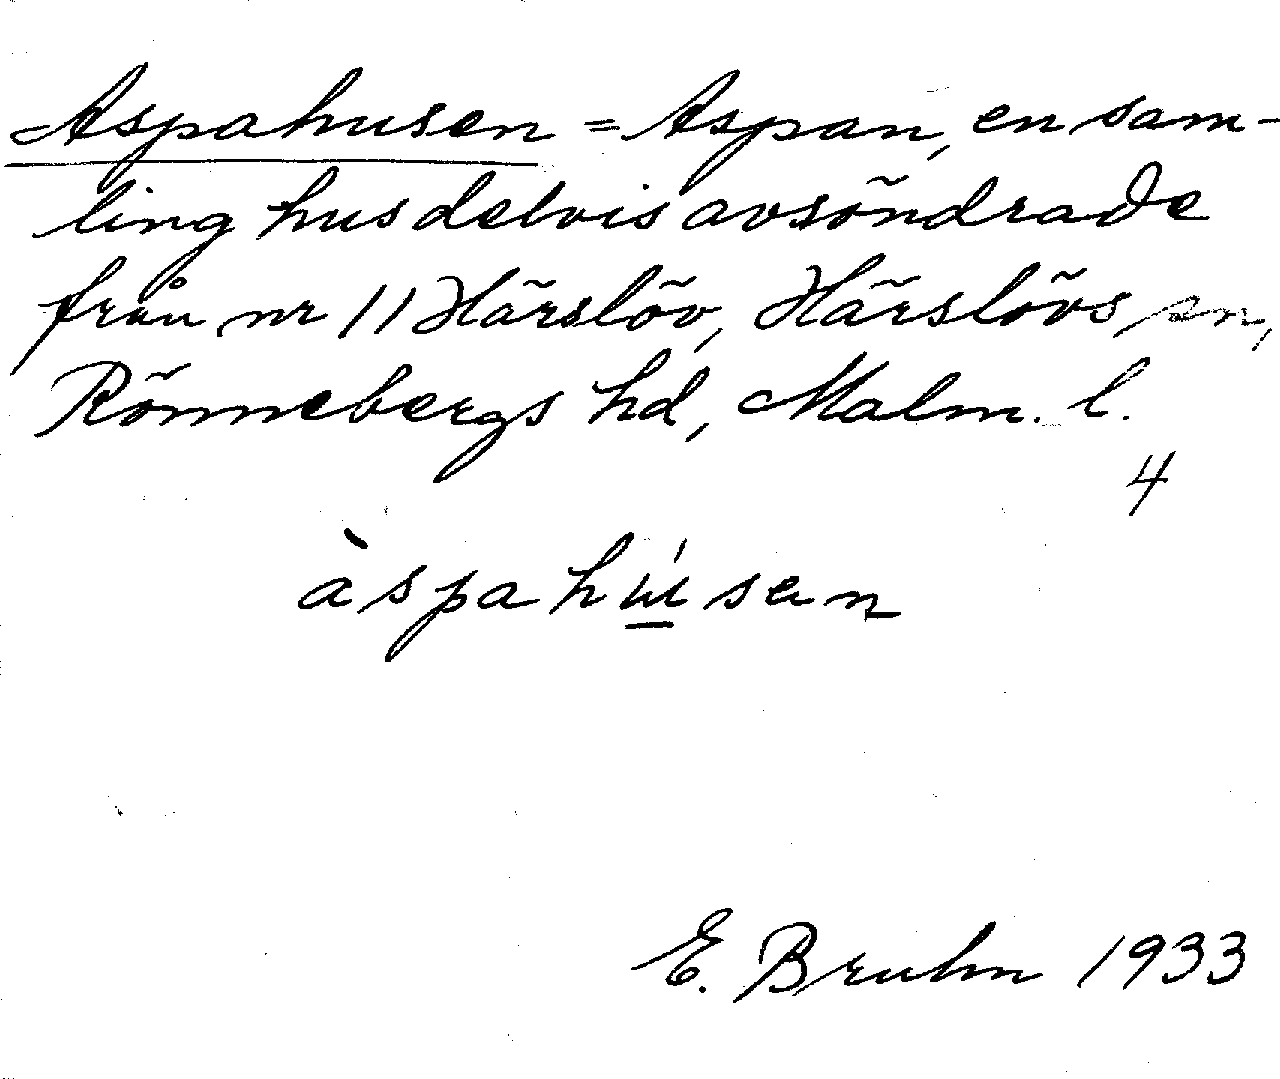 Aspahusen = Aspan, en sam-
ling hus delvis avsöndrade
från nr 11 Härslöv, Härslövs sn,
Rönnebergs hd, Malm. l.
4
àspahúsen
E. Bruhn 1933